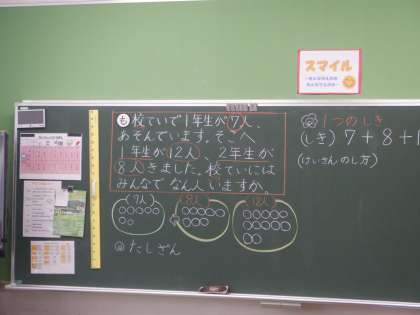 スマイル
も 校ていで1年生が7人、
あそんでいます。そこへ
1年生が12人、2年生が
8人きました。校ていには
みんなで なん人いますか。
(7人)
(8人)
(12人)
たしざん
め 1つのしき
(しき) 7+8+1
(けいさんのし方)